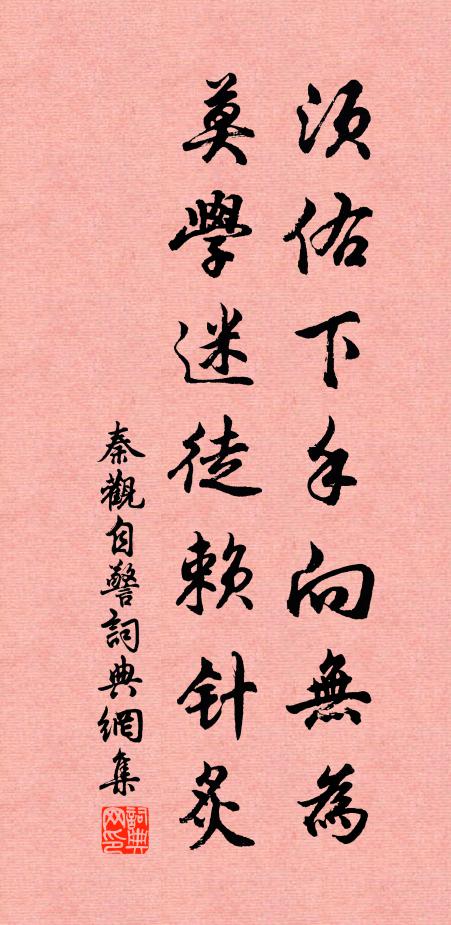 須佑下手向無為
莫學迷徒賴针灸
秦觀自警詞典網集
詞典网印